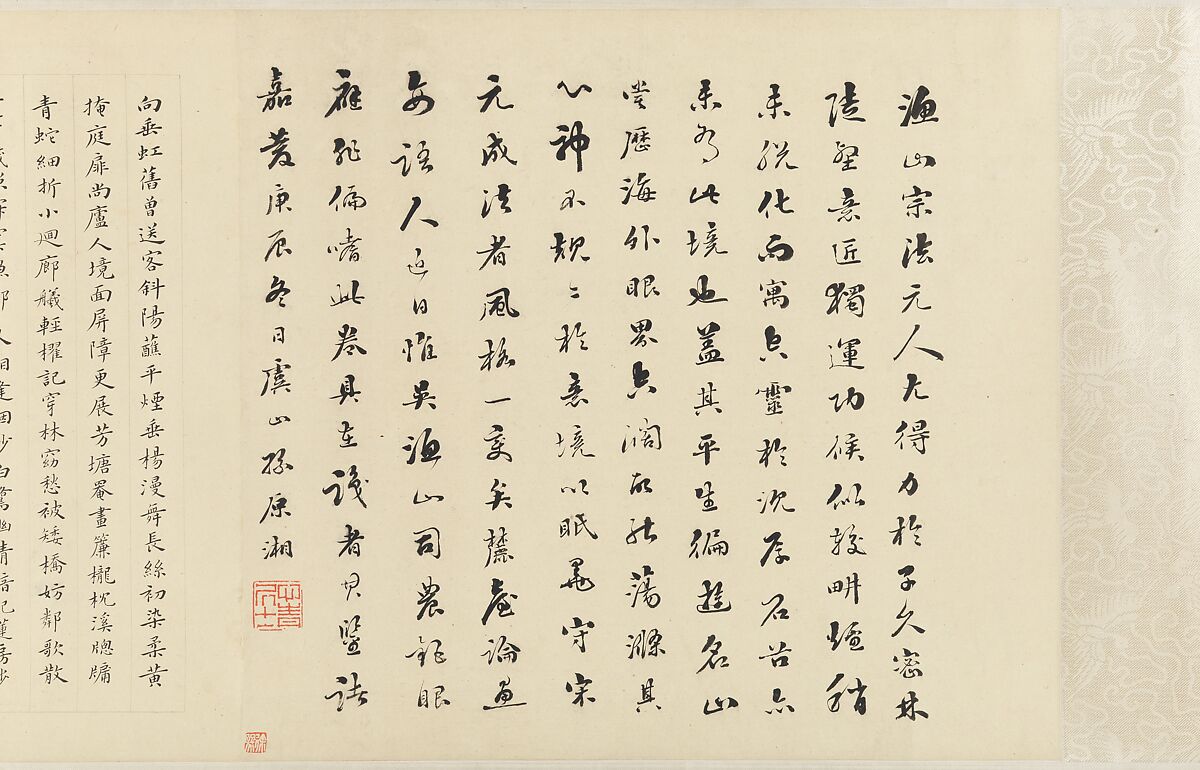 漁山宗法元人尤得力於子久密林
陡壑意匠獨運功候似較畊煙稍
未脱化而寓空靈於沈厚石谷亦
未有此境也蓋其平生徧遊名山
嘗歷海外眼界空濶故能蕩滌其
心神不規〻於意境以眠毫守宋
元成法者風格一變矣麓臺論畫
每語人近日惟吳漁山司農龍眼
嗜此卷具在識者其鑒諸
嘉慶庚辰冬日虞山孫原湘
向垂虹舊曾送客斜陽蘸平煙垂楊漫舞長絲初染柔黃
掩庭扉尚廬人境面屏障更展芳塘罨畫簾櫳枕溪牕牖
青蛇細折小迴廊艤輕櫂記穿林窈愁被矮橋妨鄰歌散